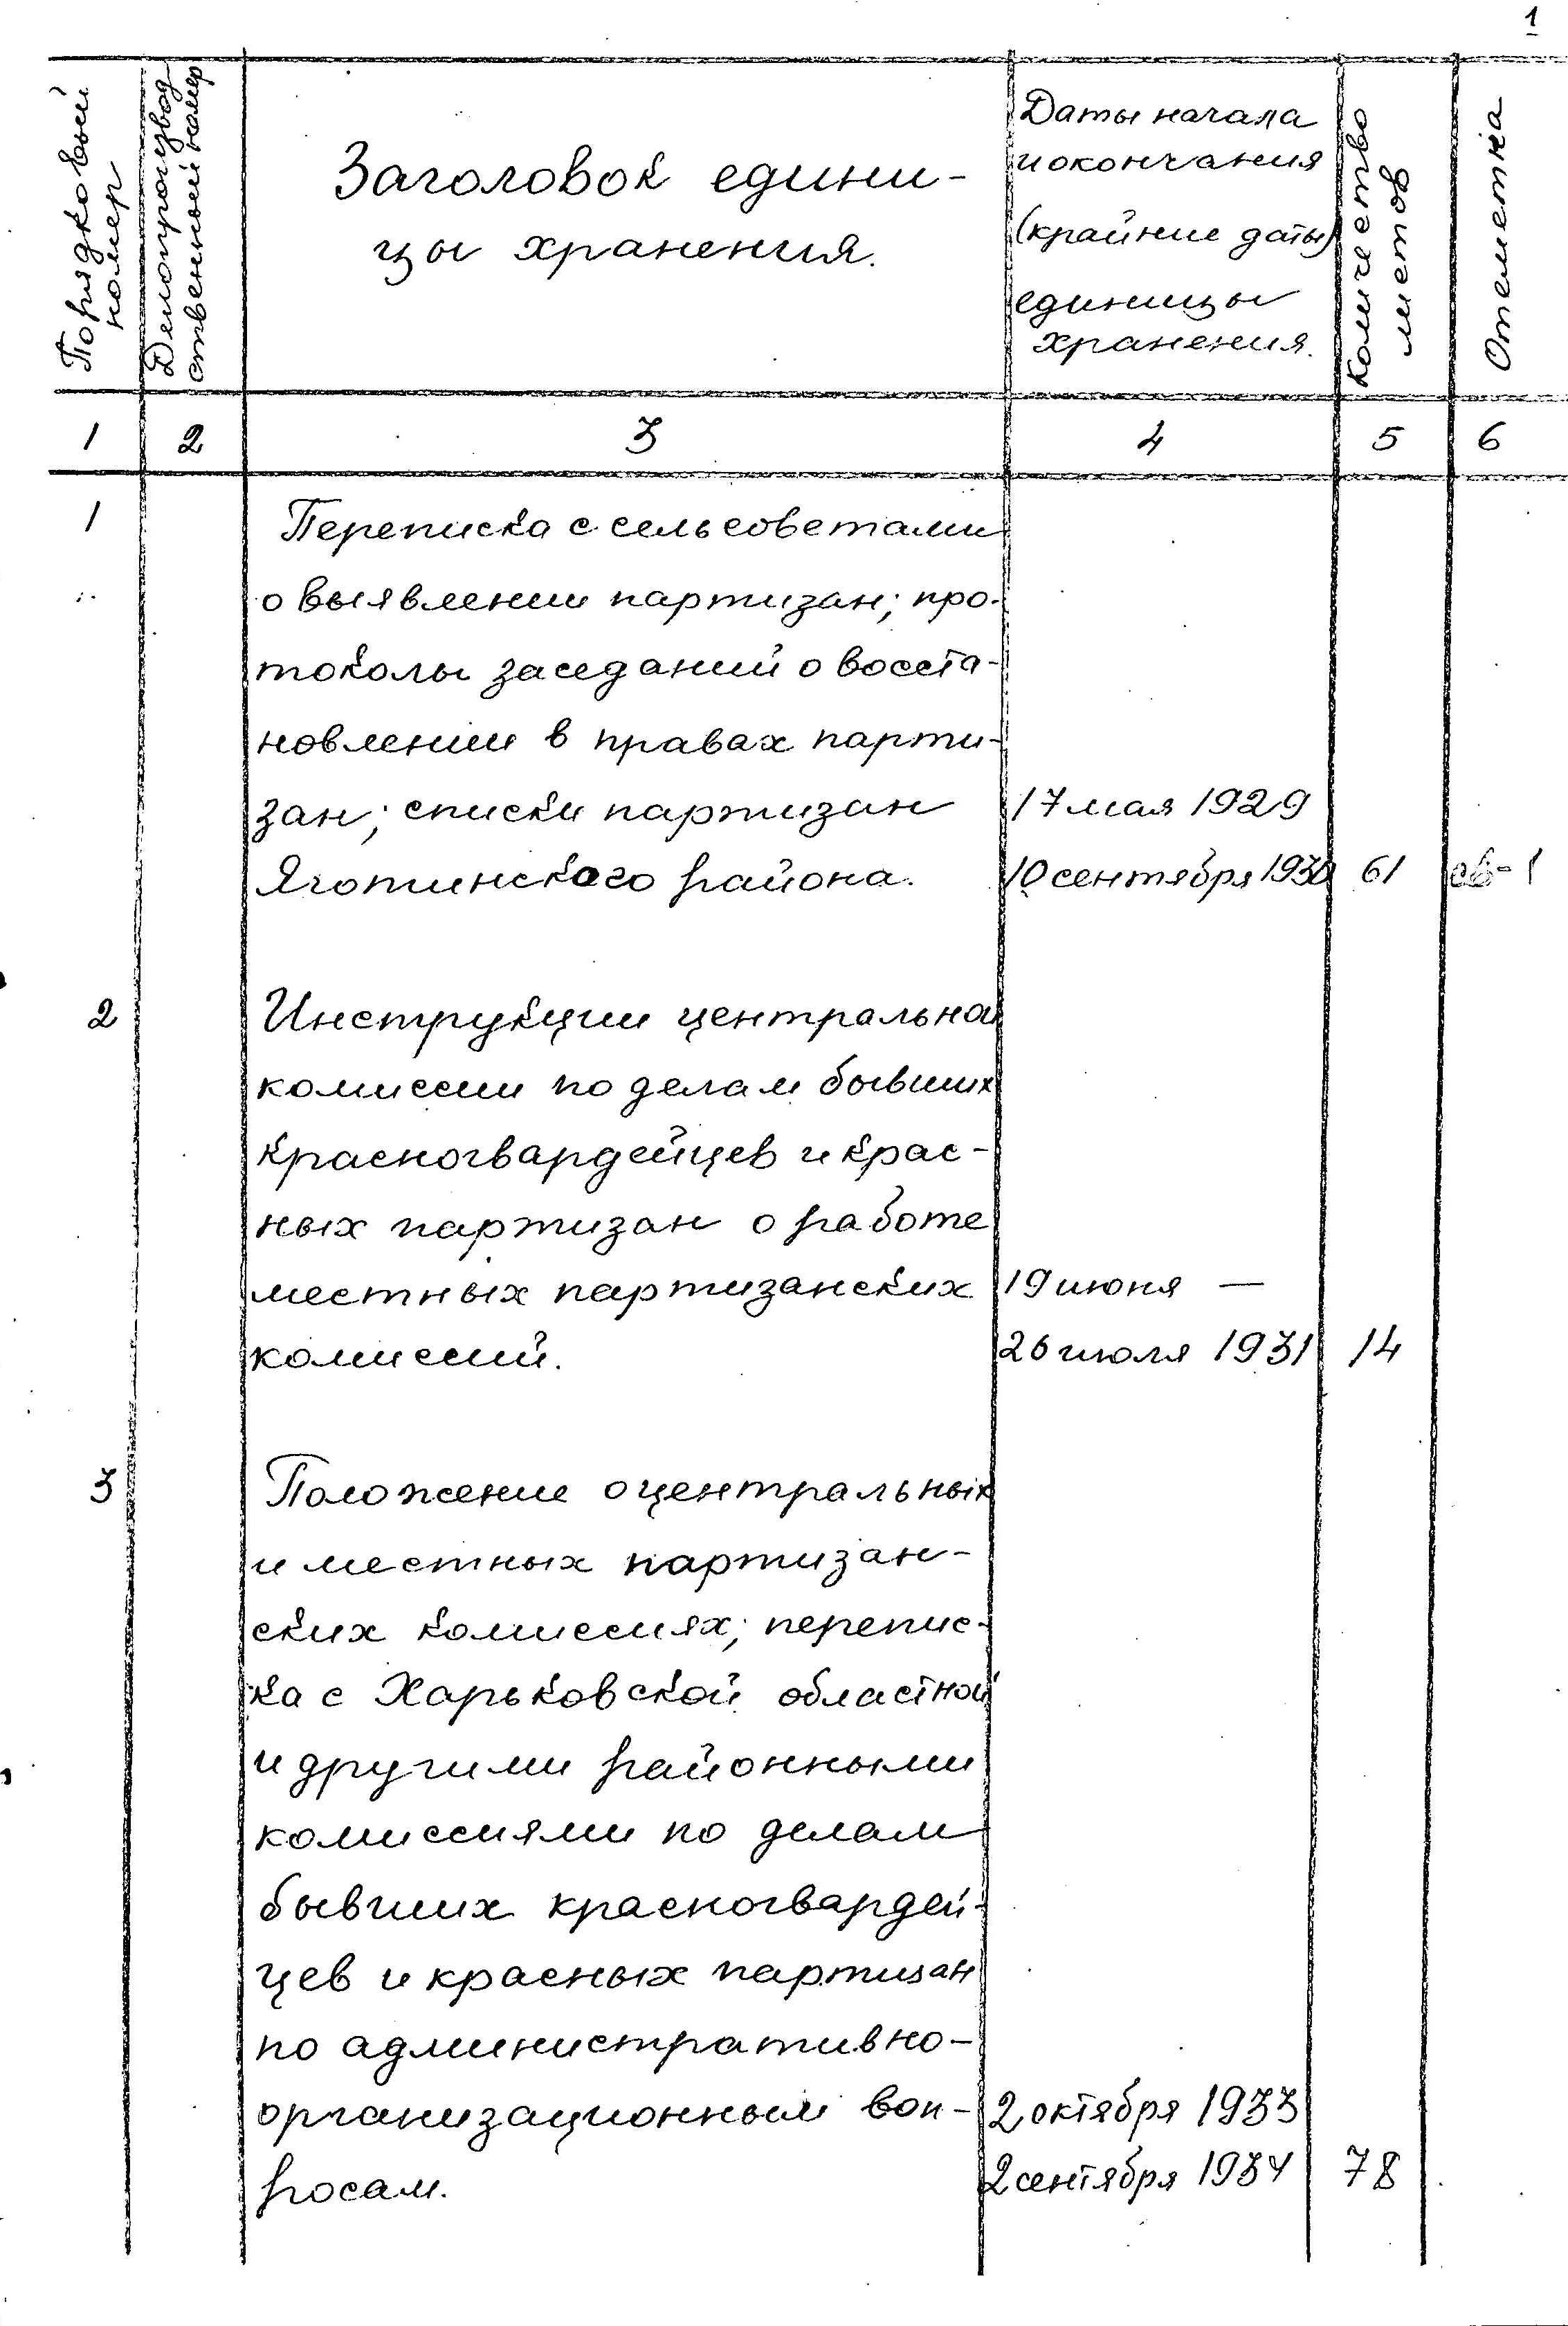 1
Порядковый
номер
Делопроизвод
ственный номер
Заголовок едини-
цы хранения.
Даты начала
и окончания
(крайние даты)
единицы
хранения.
Количество
листов
Отметка
1 2 3 4 5 6
1 Переписка с сельсоветами
о выявлении партизан; про-
токолы заседаний о восста-
новлении в правах парти-
зан; списки партизан 17 мая 1929
Яготинского района. 10 сентября 1930 61 св-1
2 Инструкции центральной
комиссии по делам бывших
красногвардейцев и крас-
ных партизан о работе
местных партизанских 19 июня —
комиссий. 26 июля 1931 14
3 Положение о центральных
и местных партизан-
ских комиссиях; перепис-
ка с Харьковской областной
и другими районными
комиссиями по делам
бывших красногвардей-
цев и красных партизан
по административно-
организационным воп- 2 октября 1933
росам. 2 сентября 1934 78